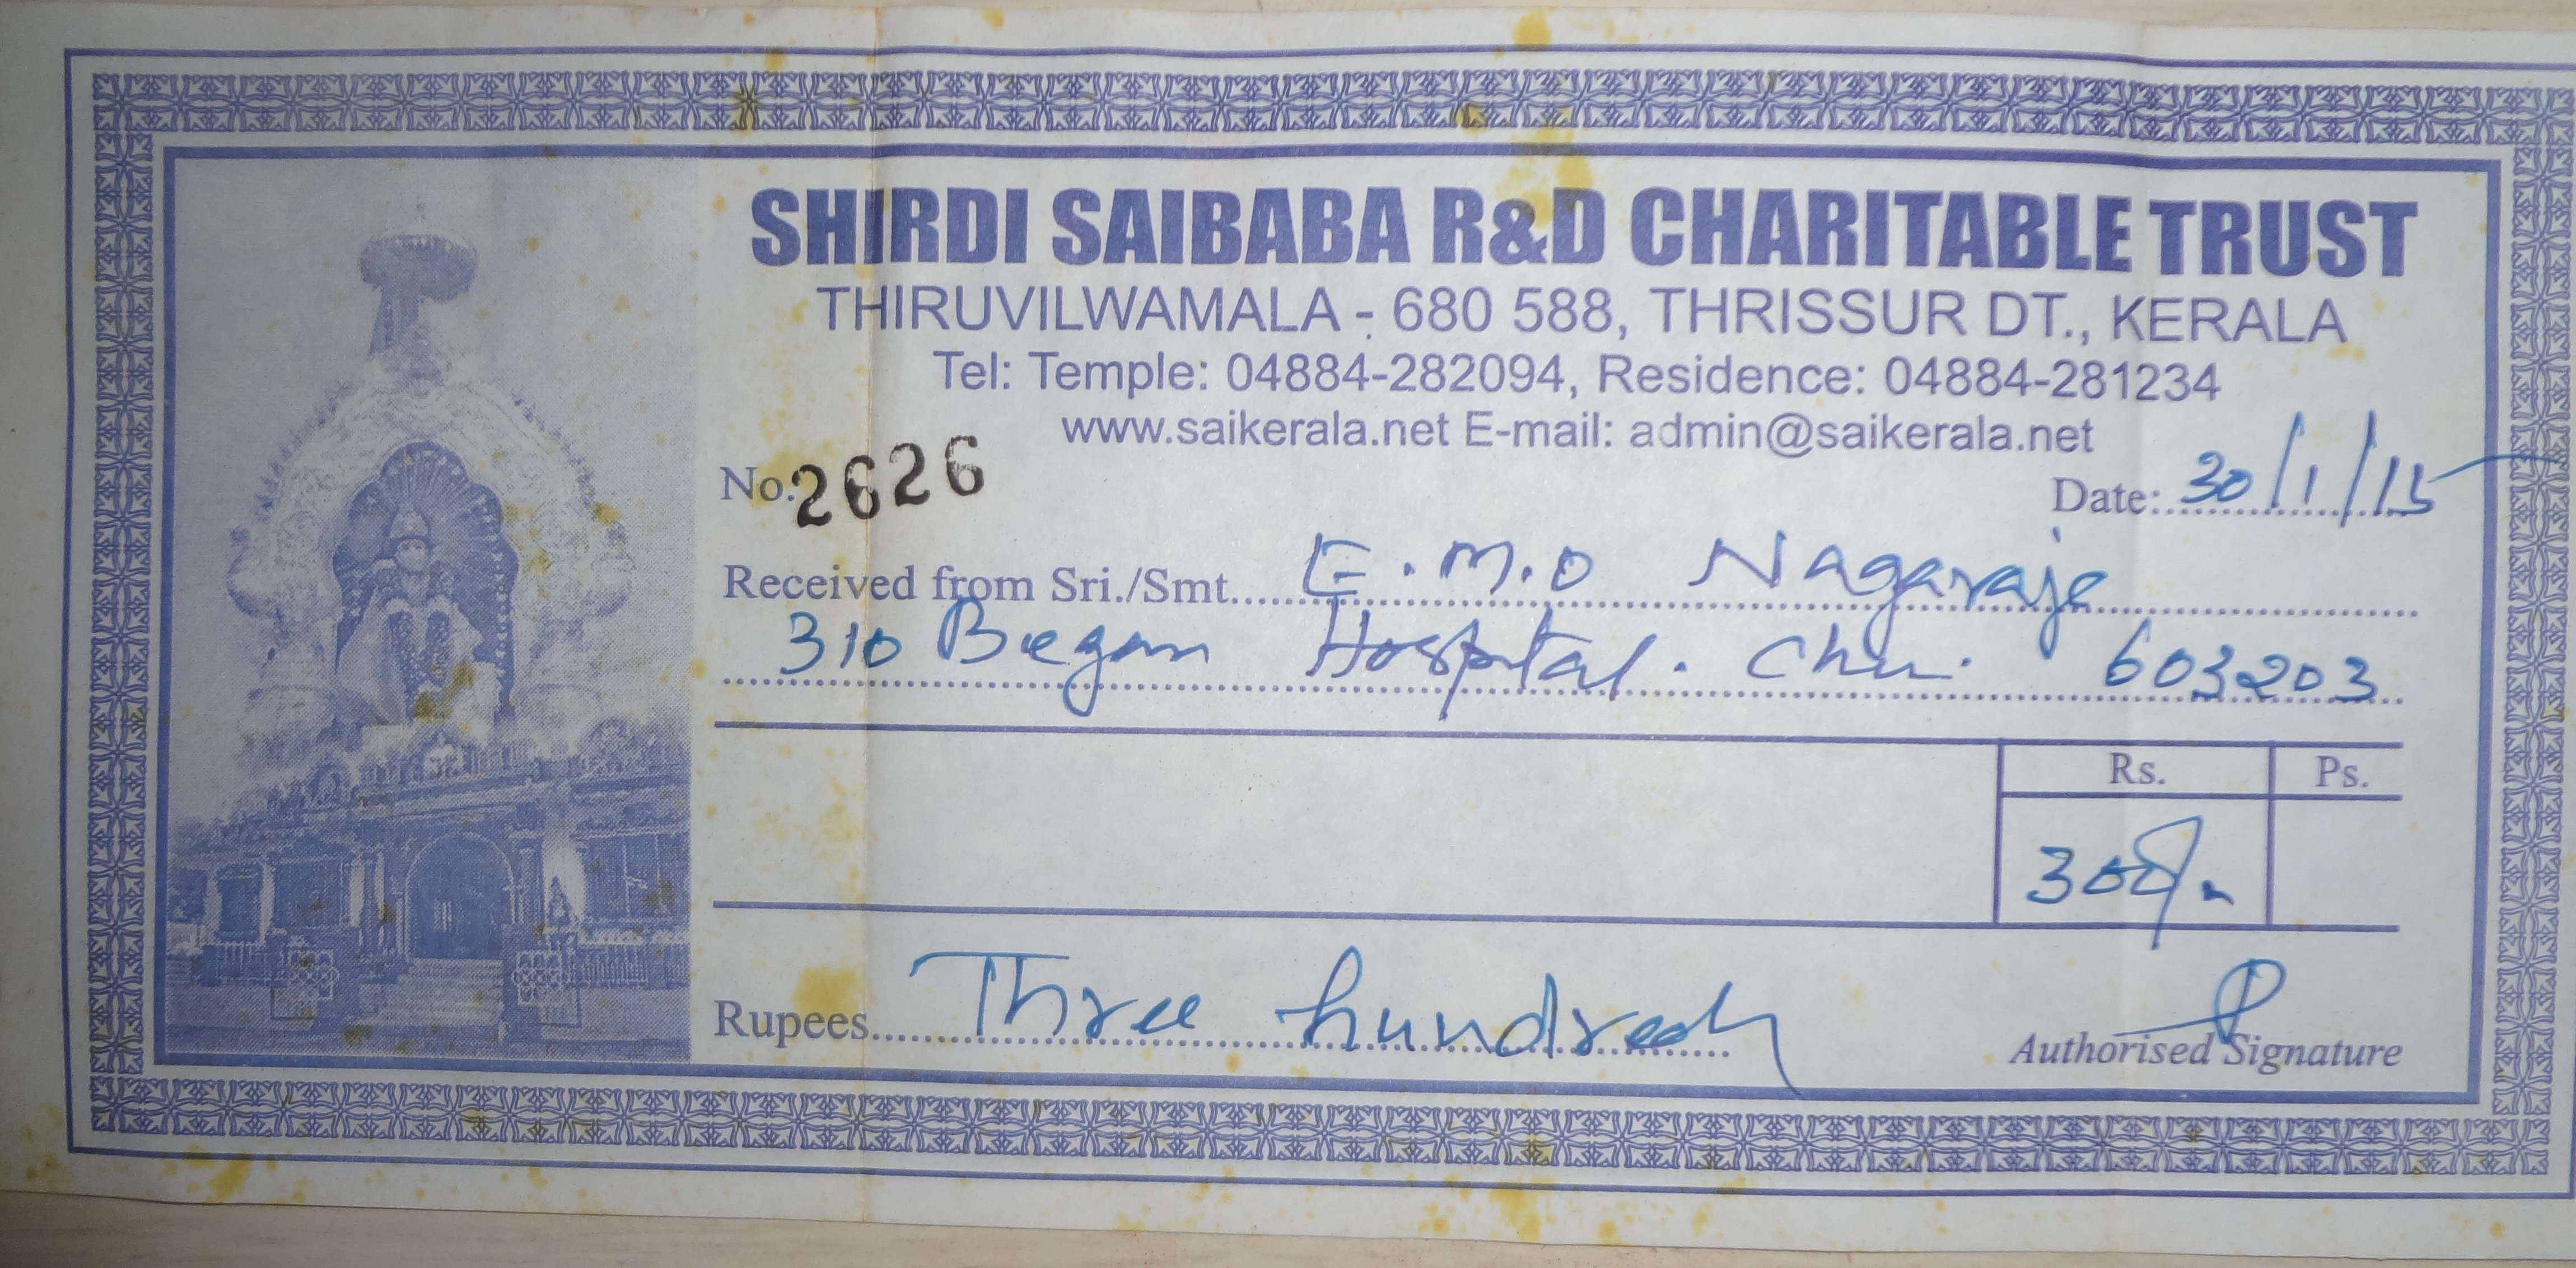 SHIRDI SAIBABA R&D CHARITABLE TRUST
THIRUVILWAMALA - 680 588, THRISSUR DT., KERALA
Tel: Temple: 04884-282094, Residence: 04884-281234
www.saikerala.net E-mail: admin@saikerala.net
No. 2626 Date: 30/1/15
Received from Sri./Smt. E.M.O Nagaraje
310 Began Hospital. 603203
Rs. Ps.
300/-
Rupees Three hundred
Authorised Signature